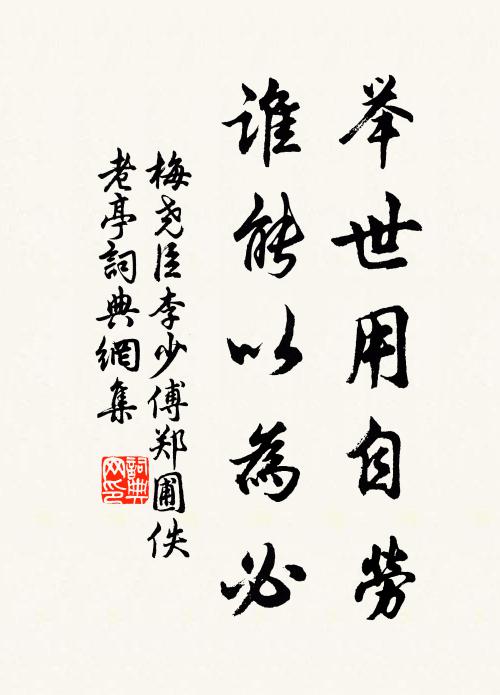 举世用自劳
谁能以為必
梅尧臣李少傅郑圃佚
老亭詞典網集
詞典
网印